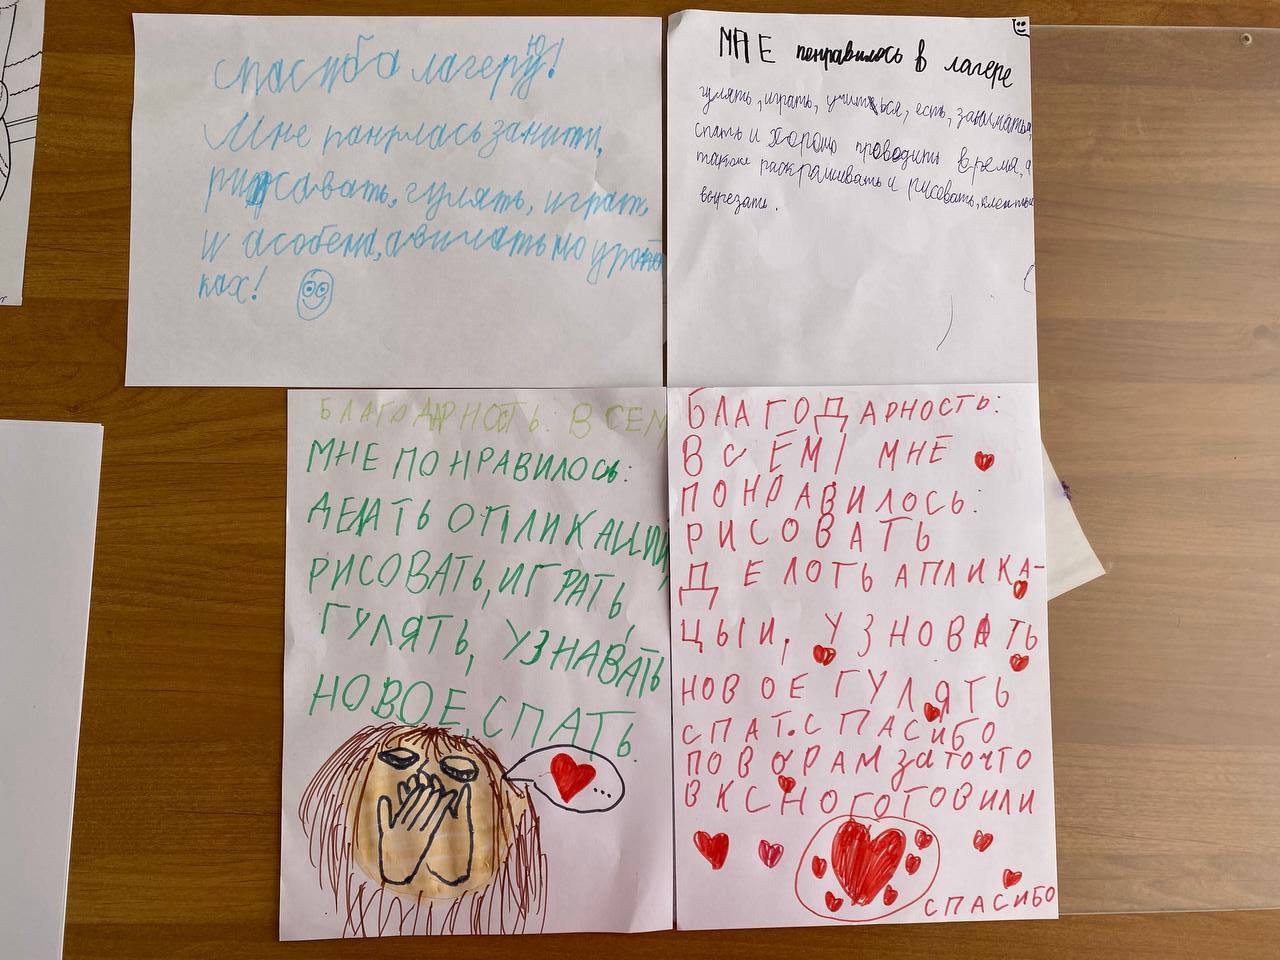 спасиба лагерю!
Мне панрлась занити,
рисавать, гулять, играт,
и асобена, а вичать мо уро
ках!
МНЕ понравилось в лагере
гулять, играть, учиться, есть, заниматься,
спать и хорошо проводить время, а
также раскрашивать и рисовать, клеить и
вырезать.
БЛАГОДАРНОСТЬ: ВСЕМ
МНЕ ПОНРАВИЛОСЬ:
ДЕЛАТЬ ОПЛИКАЦИИ,
РИСОВАТЬ, ИГРАТЬ,
ГУЛЯТЬ, УЗНАВАТЬ
НОВОЕ, СПАТЬ.
...
БЛАГОДАРНОСТЬ:
ВСЕМ! МНЕ
ПОНРАВИЛОСЬ:
РИСОВАТЬ
ДЕЛОТЬ АПЛИКА-
ЦЫИ, УЗНОВАТЬ
НОВОЕ ГУЛЯТЬ
СПАТ. СПАСИБО
ПОВОРАМ ЗА ТО ЧТО
ВКСНО ГОТОВИЛИ
СПАСИБО